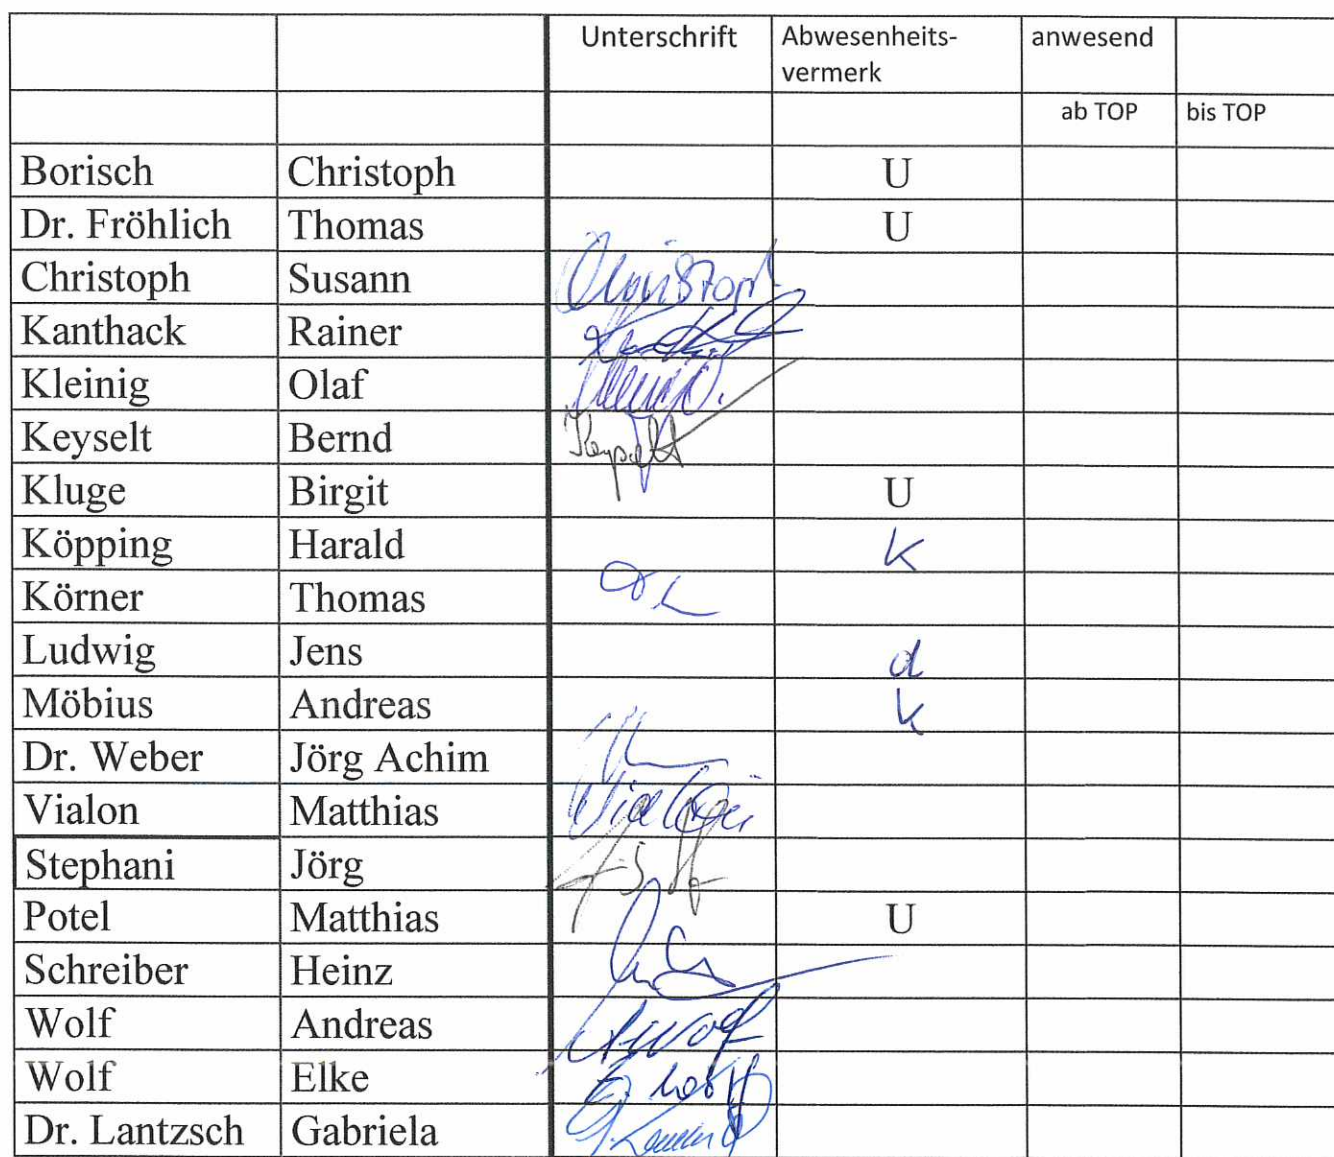 Unterschrift Abwesenheits- anwesend
vermerk
ab TOP bis TOP
Borisch Christoph U
Dr. Fröhlich Thomas U
Christoph Susann Christoph
Kanthack Rainer
Kleinig Olaf
Keyselt Bernd Keyselt
Kluge Birgit U
Köpping Harald k
Körner Thomas
Ludwig Jens d
Möbius Andreas k
Dr. Weber Jörg Achim
Vialon Matthias
Stephani Jörg
Potel Matthias U
Schreiber Heinz
Wolf Andreas
Wolf Elke
Dr. Lantzsch Gabriela